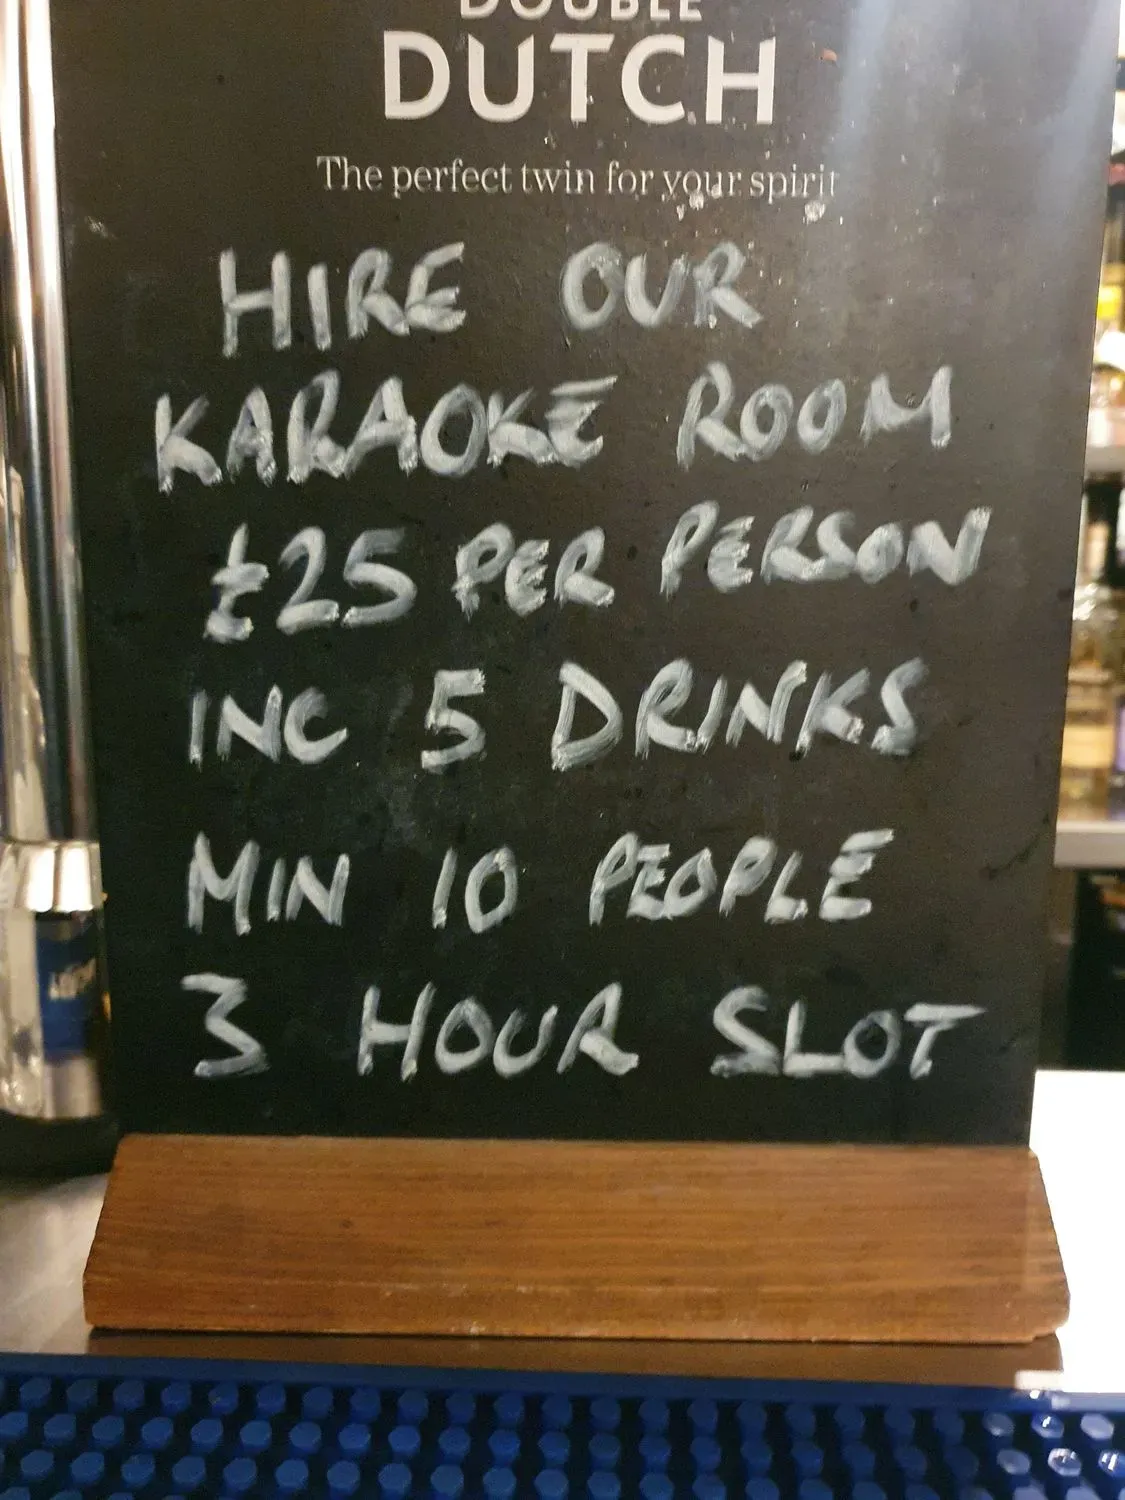 DOUBLE
DUTCH
The perfect twin for your spirit
HIRE OUR
KARAOKE ROOM
£25 PER PERSON
INC 5 DRINKS
MIN 10 PEOPLE
3 HOUR SLOT